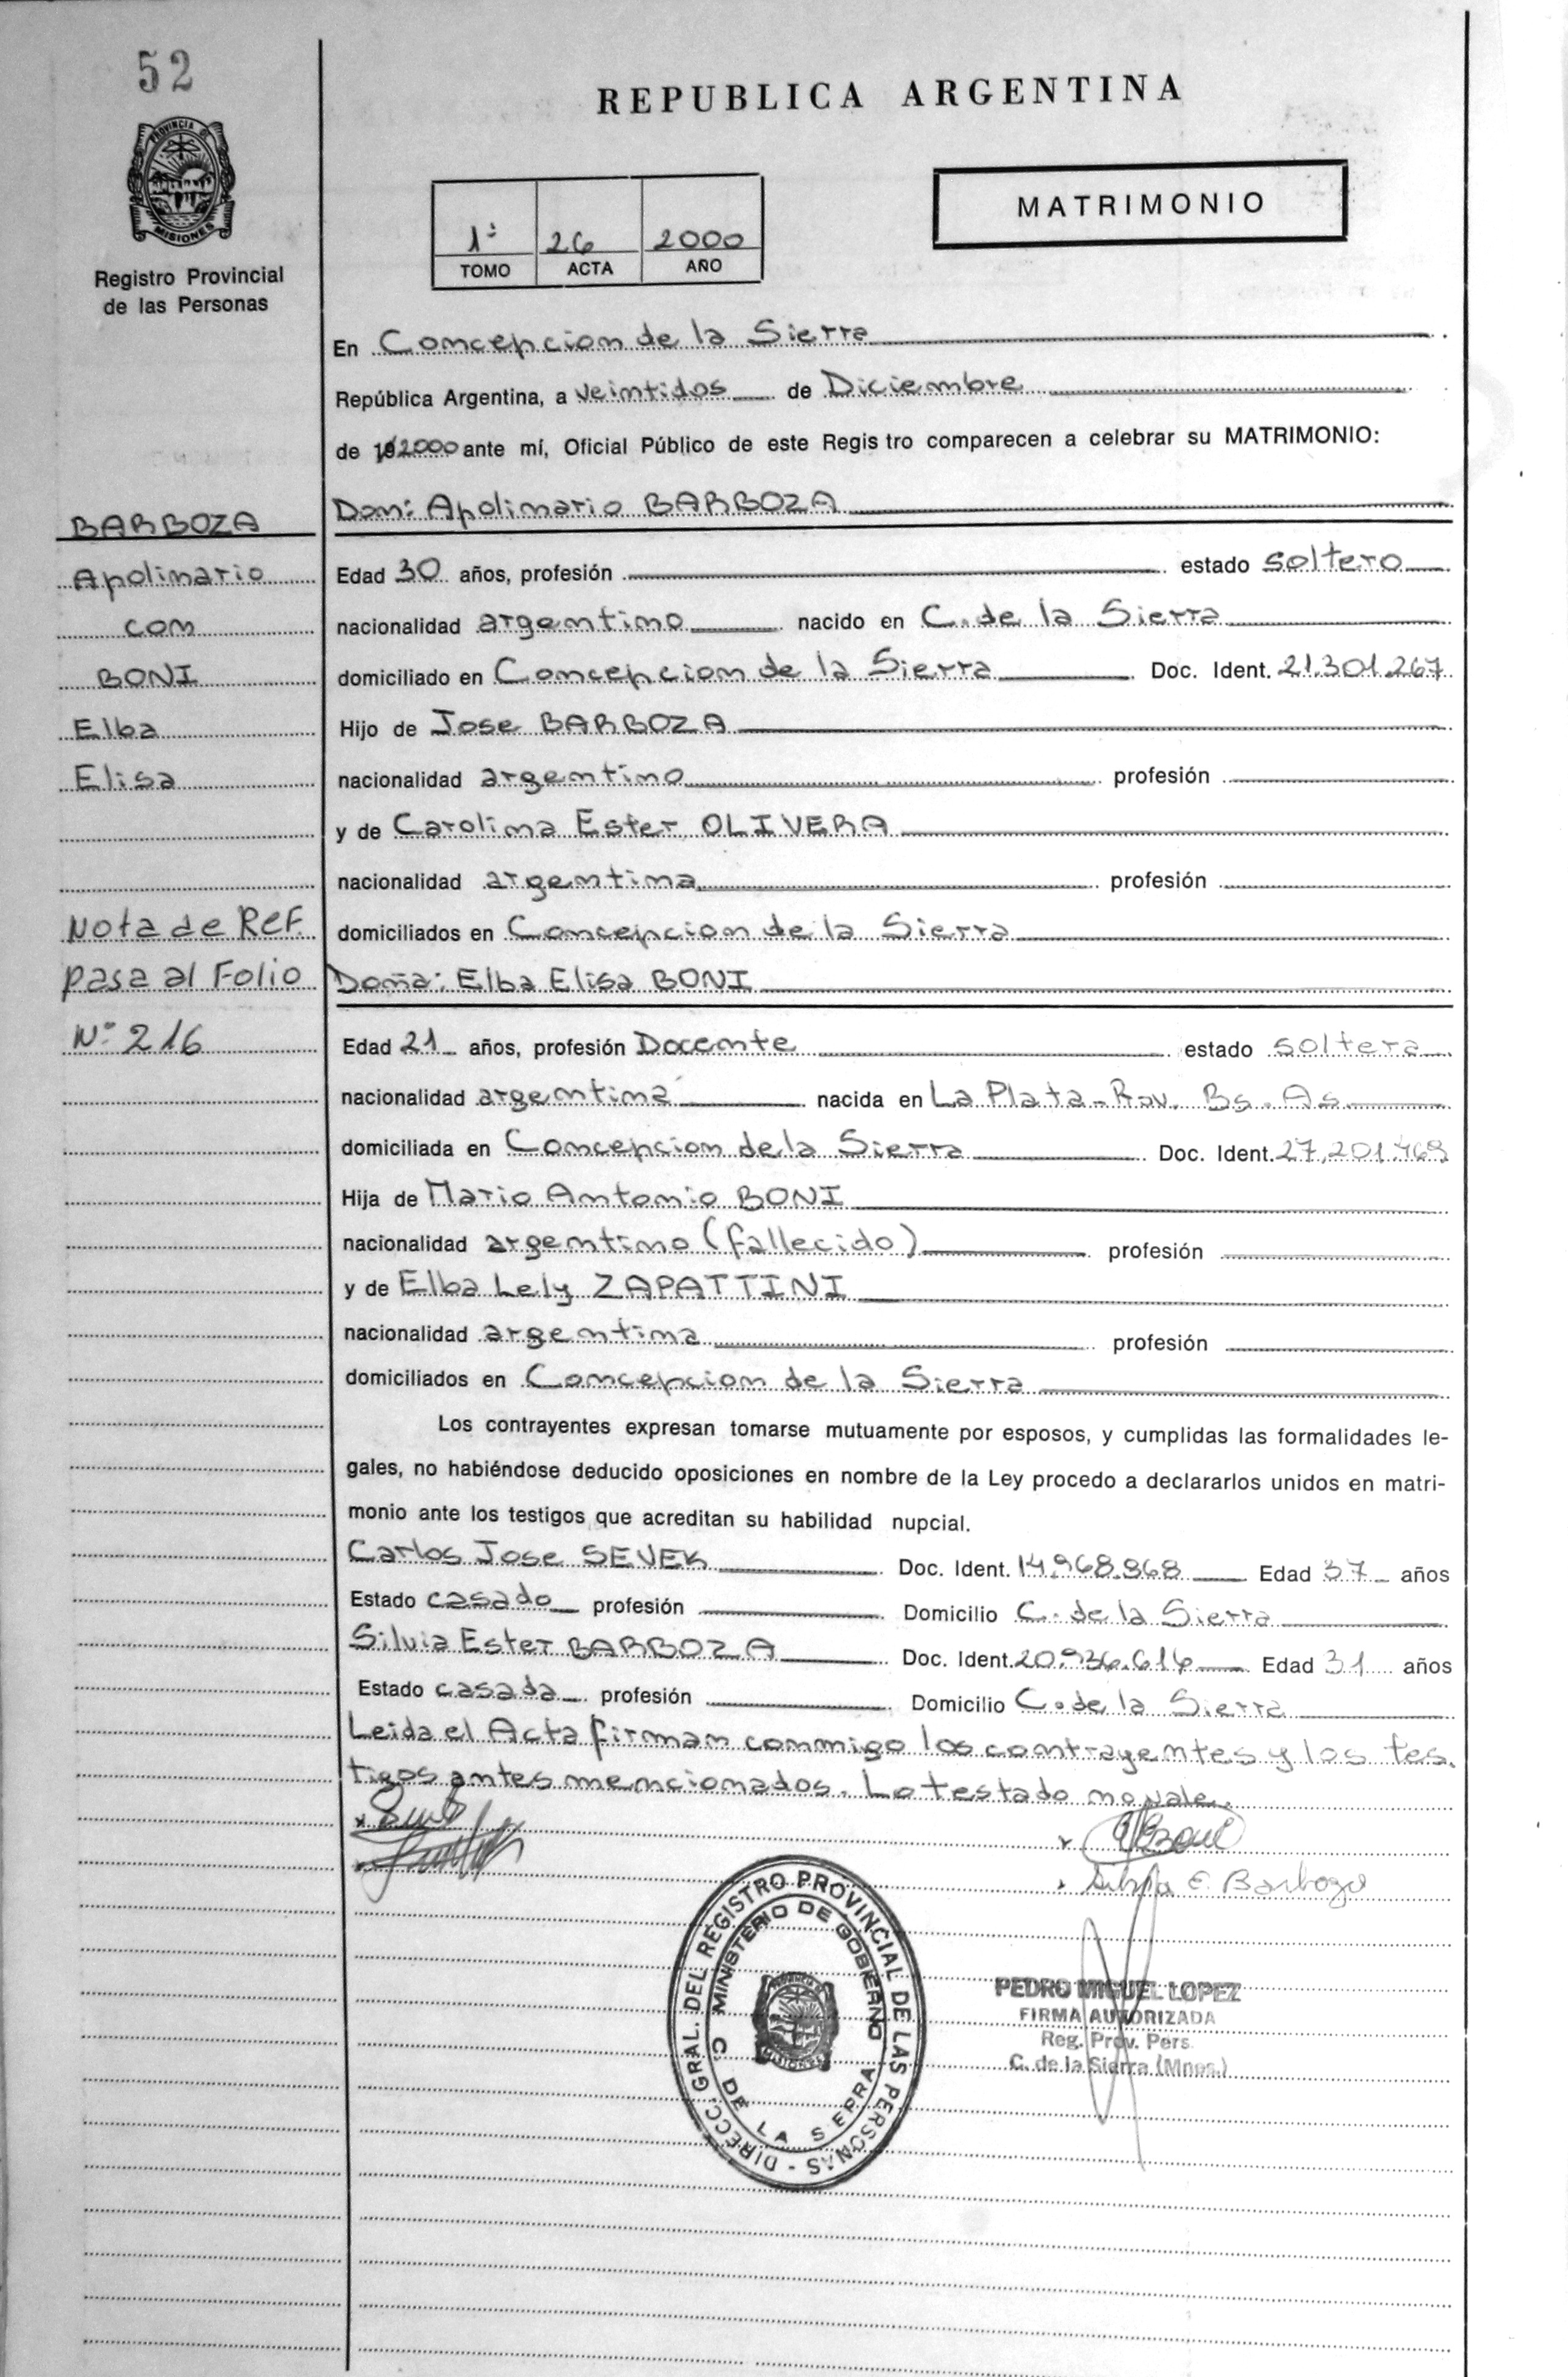 52
REPUBLICA ARGENTINA
PROVINCIA DE
MISIONES
Registro Provincial
de las Personas
MATRIMONIO
1º 26 2000
TOMO ACTA AÑO
En Concepcion de la Sierra
República Argentina, a veintidos de Diciembre
de 19 2000 ante mí, Oficial Público de este Regis tro comparecen a celebrar su MATRIMONIO:
Don: Apolinario BARBOZA
BARBOZA
Apolinario
con
BONI
Elba
Elisa
Edad 30 años, profesión estado soltero
nacionalidad argentino nacido en C. de la Sierra
domiciliado en Concepcion de la Sierra Doc. Ident. 21.301.267
Hijo de Jose BARBOZA
nacionalidad argentino profesión
y de Carolina Ester OLIVERA
nacionalidad argentina profesión
domiciliados en Concepcion de la Sierra
Nota de Ref.
pasa al Folio
Nº 216
Doña: Elba Elisa BONI
Edad 21 años, profesión Docente estado soltera
nacionalidad argentina nacida en La Plata - Prov. Bs. As.
domiciliada en Concepcion de la Sierra Doc. Ident. 27.201.469
Hija de Mario Antonio BONI
nacionalidad argentino (fallecido) profesión
y de Elba Lely ZAPATTINI
nacionalidad argentina profesión
domiciliados en Concepcion de la Sierra
Los contrayentes expresan tomarse mutuamente por esposos, y cumplidas las formalidades le-
gales, no habiéndose deducido oposiciones en nombre de la Ley procedo a declararlos unidos en matri-
monio ante los testigos que acreditan su habilidad nupcial.
Carlos Jose SEVEK Doc. Ident. 14.968.868 Edad 37 años
Estado casado profesión Domicilio C. de la Sierra
Silvia Ester BARBOZA Doc. Ident. 20.936.614 Edad 31 años
Estado casada profesión Domicilio C. de la Sierra
Leida el Acta firman conmigo los contrayentes y los tes.
tigos antes mencionados. Lo testado no vale.
Silvia E. Barboza
DIRECC. GRAL. DEL REGISTRO PROVINCIAL DE LAS PERSONAS -
MINISTERIO DE GOBIERNO
C. DE LA SIERRA
PEDRO MIGUEL LOPEZ
FIRMA AUTORIZADA
Reg. Prov. Pers.
C. de la Sierra (Mnes.)